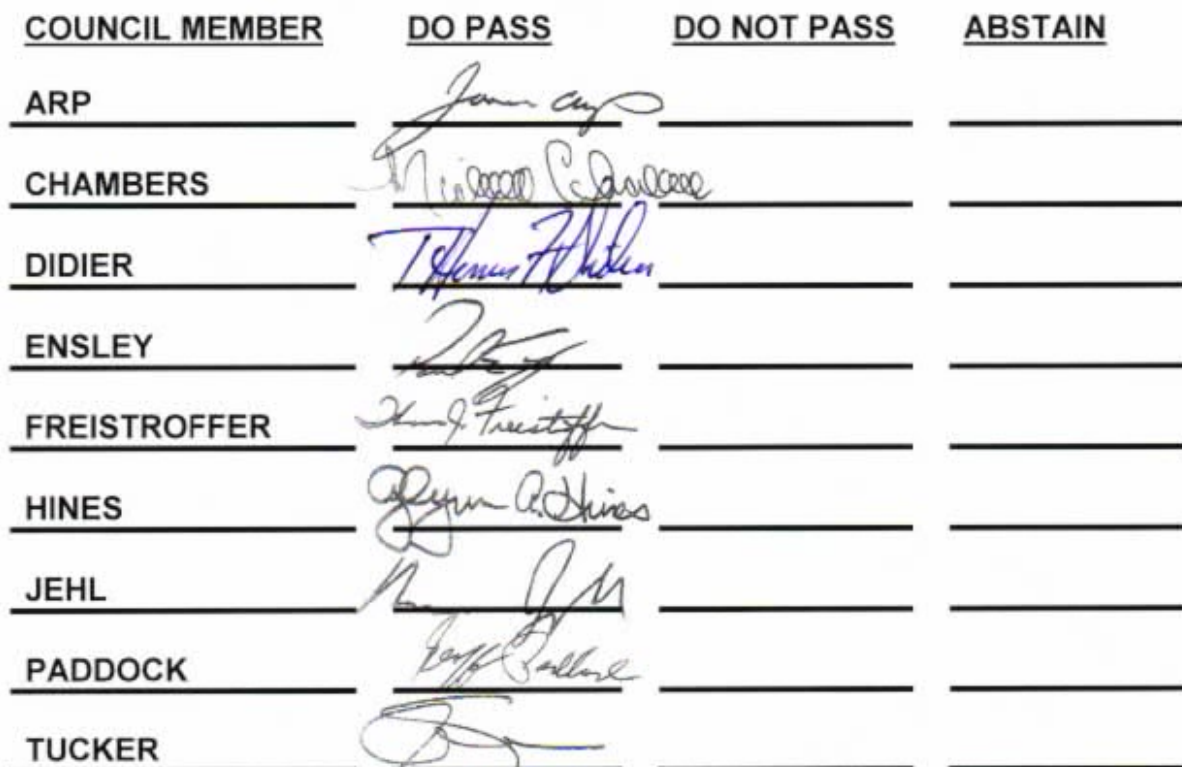 COUNCIL MEMBER DO PASS DO NOT PASS ABSTAIN
ARP
CHAMBERS
DIDIER
ENSLEY
FREISTROFFER Freistroffer
HINES Glynn A. Hines
JEHL
PADDOCK Geoff Paddock
TUCKER